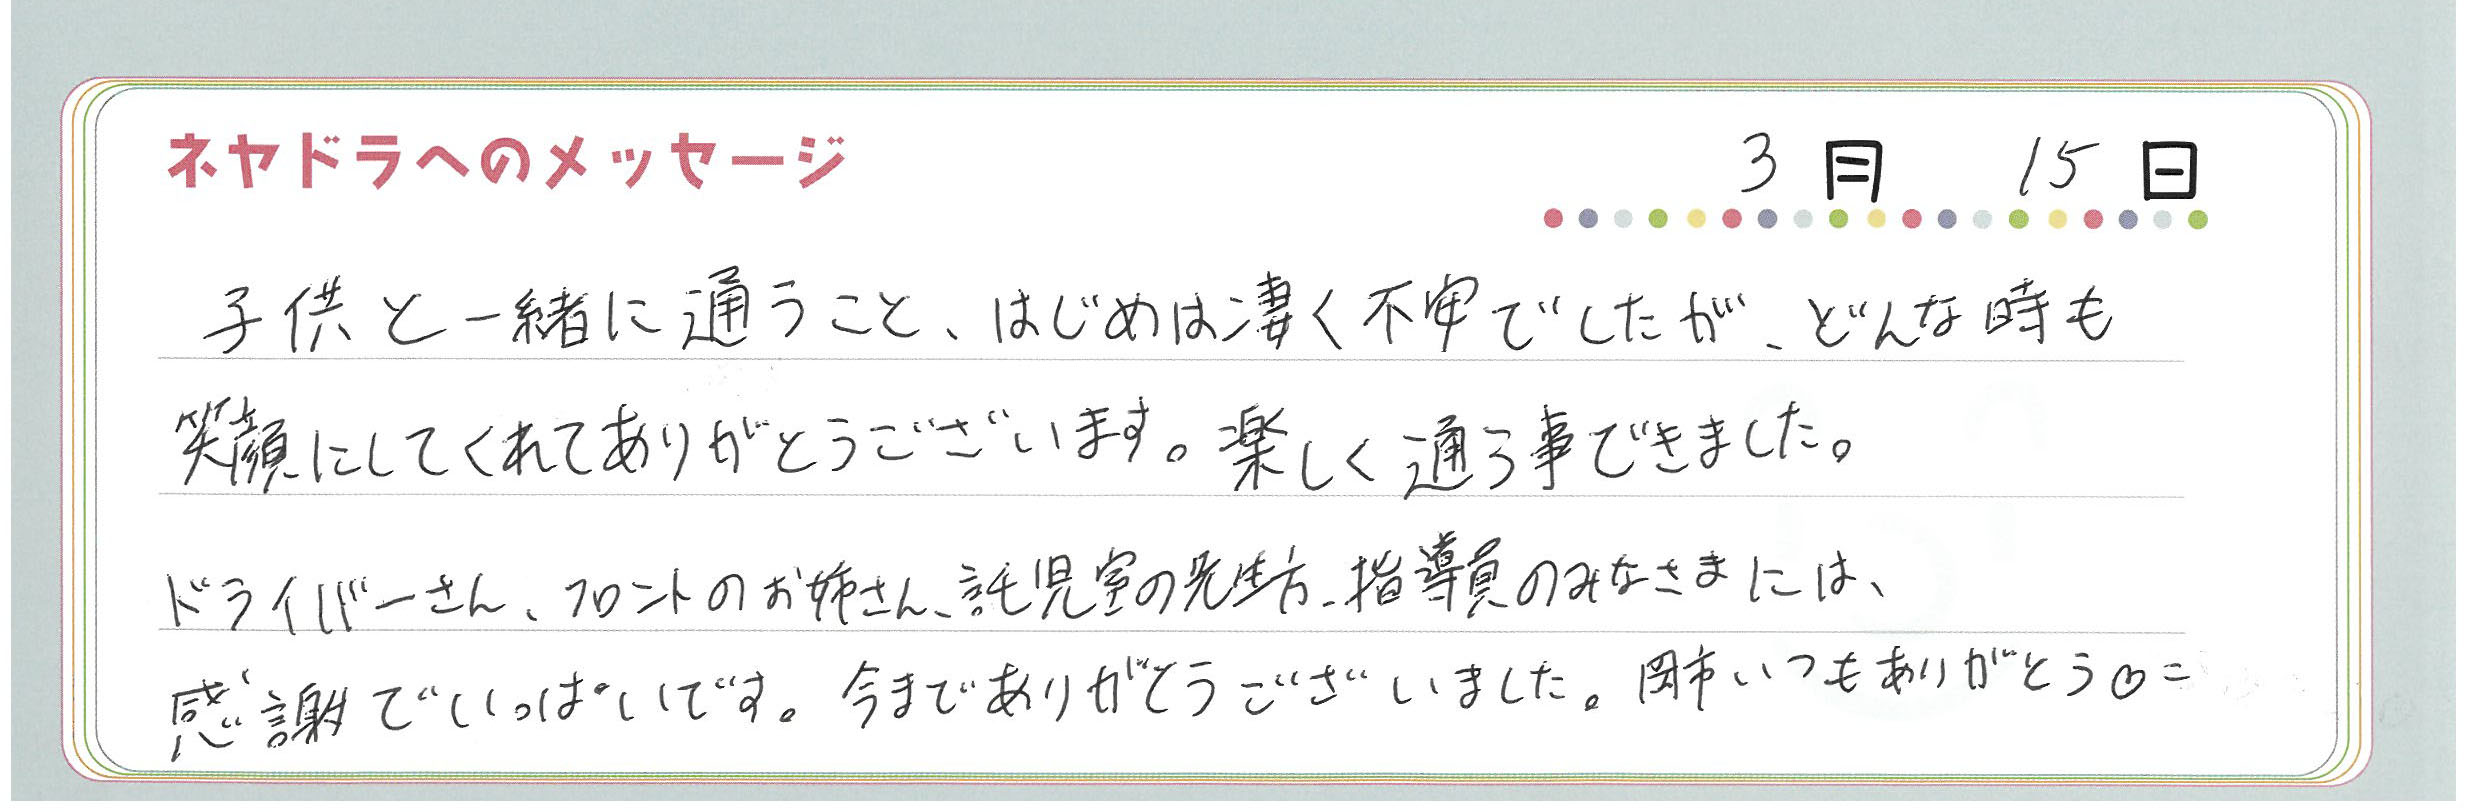 ネヤドラへのメッセージ
3月 15日
子供と一緒に通うこと、はじめは凄く不安でしたが、どんな時も
笑顔にしてくれてありがとうございます。楽しく通う事できました。
ドライバーさん、フロントのお姉さん、託児室の先生方、指導員のみなさまには、
感謝でいっぱいです。今までありがとうございました。岡市いつもありがとう